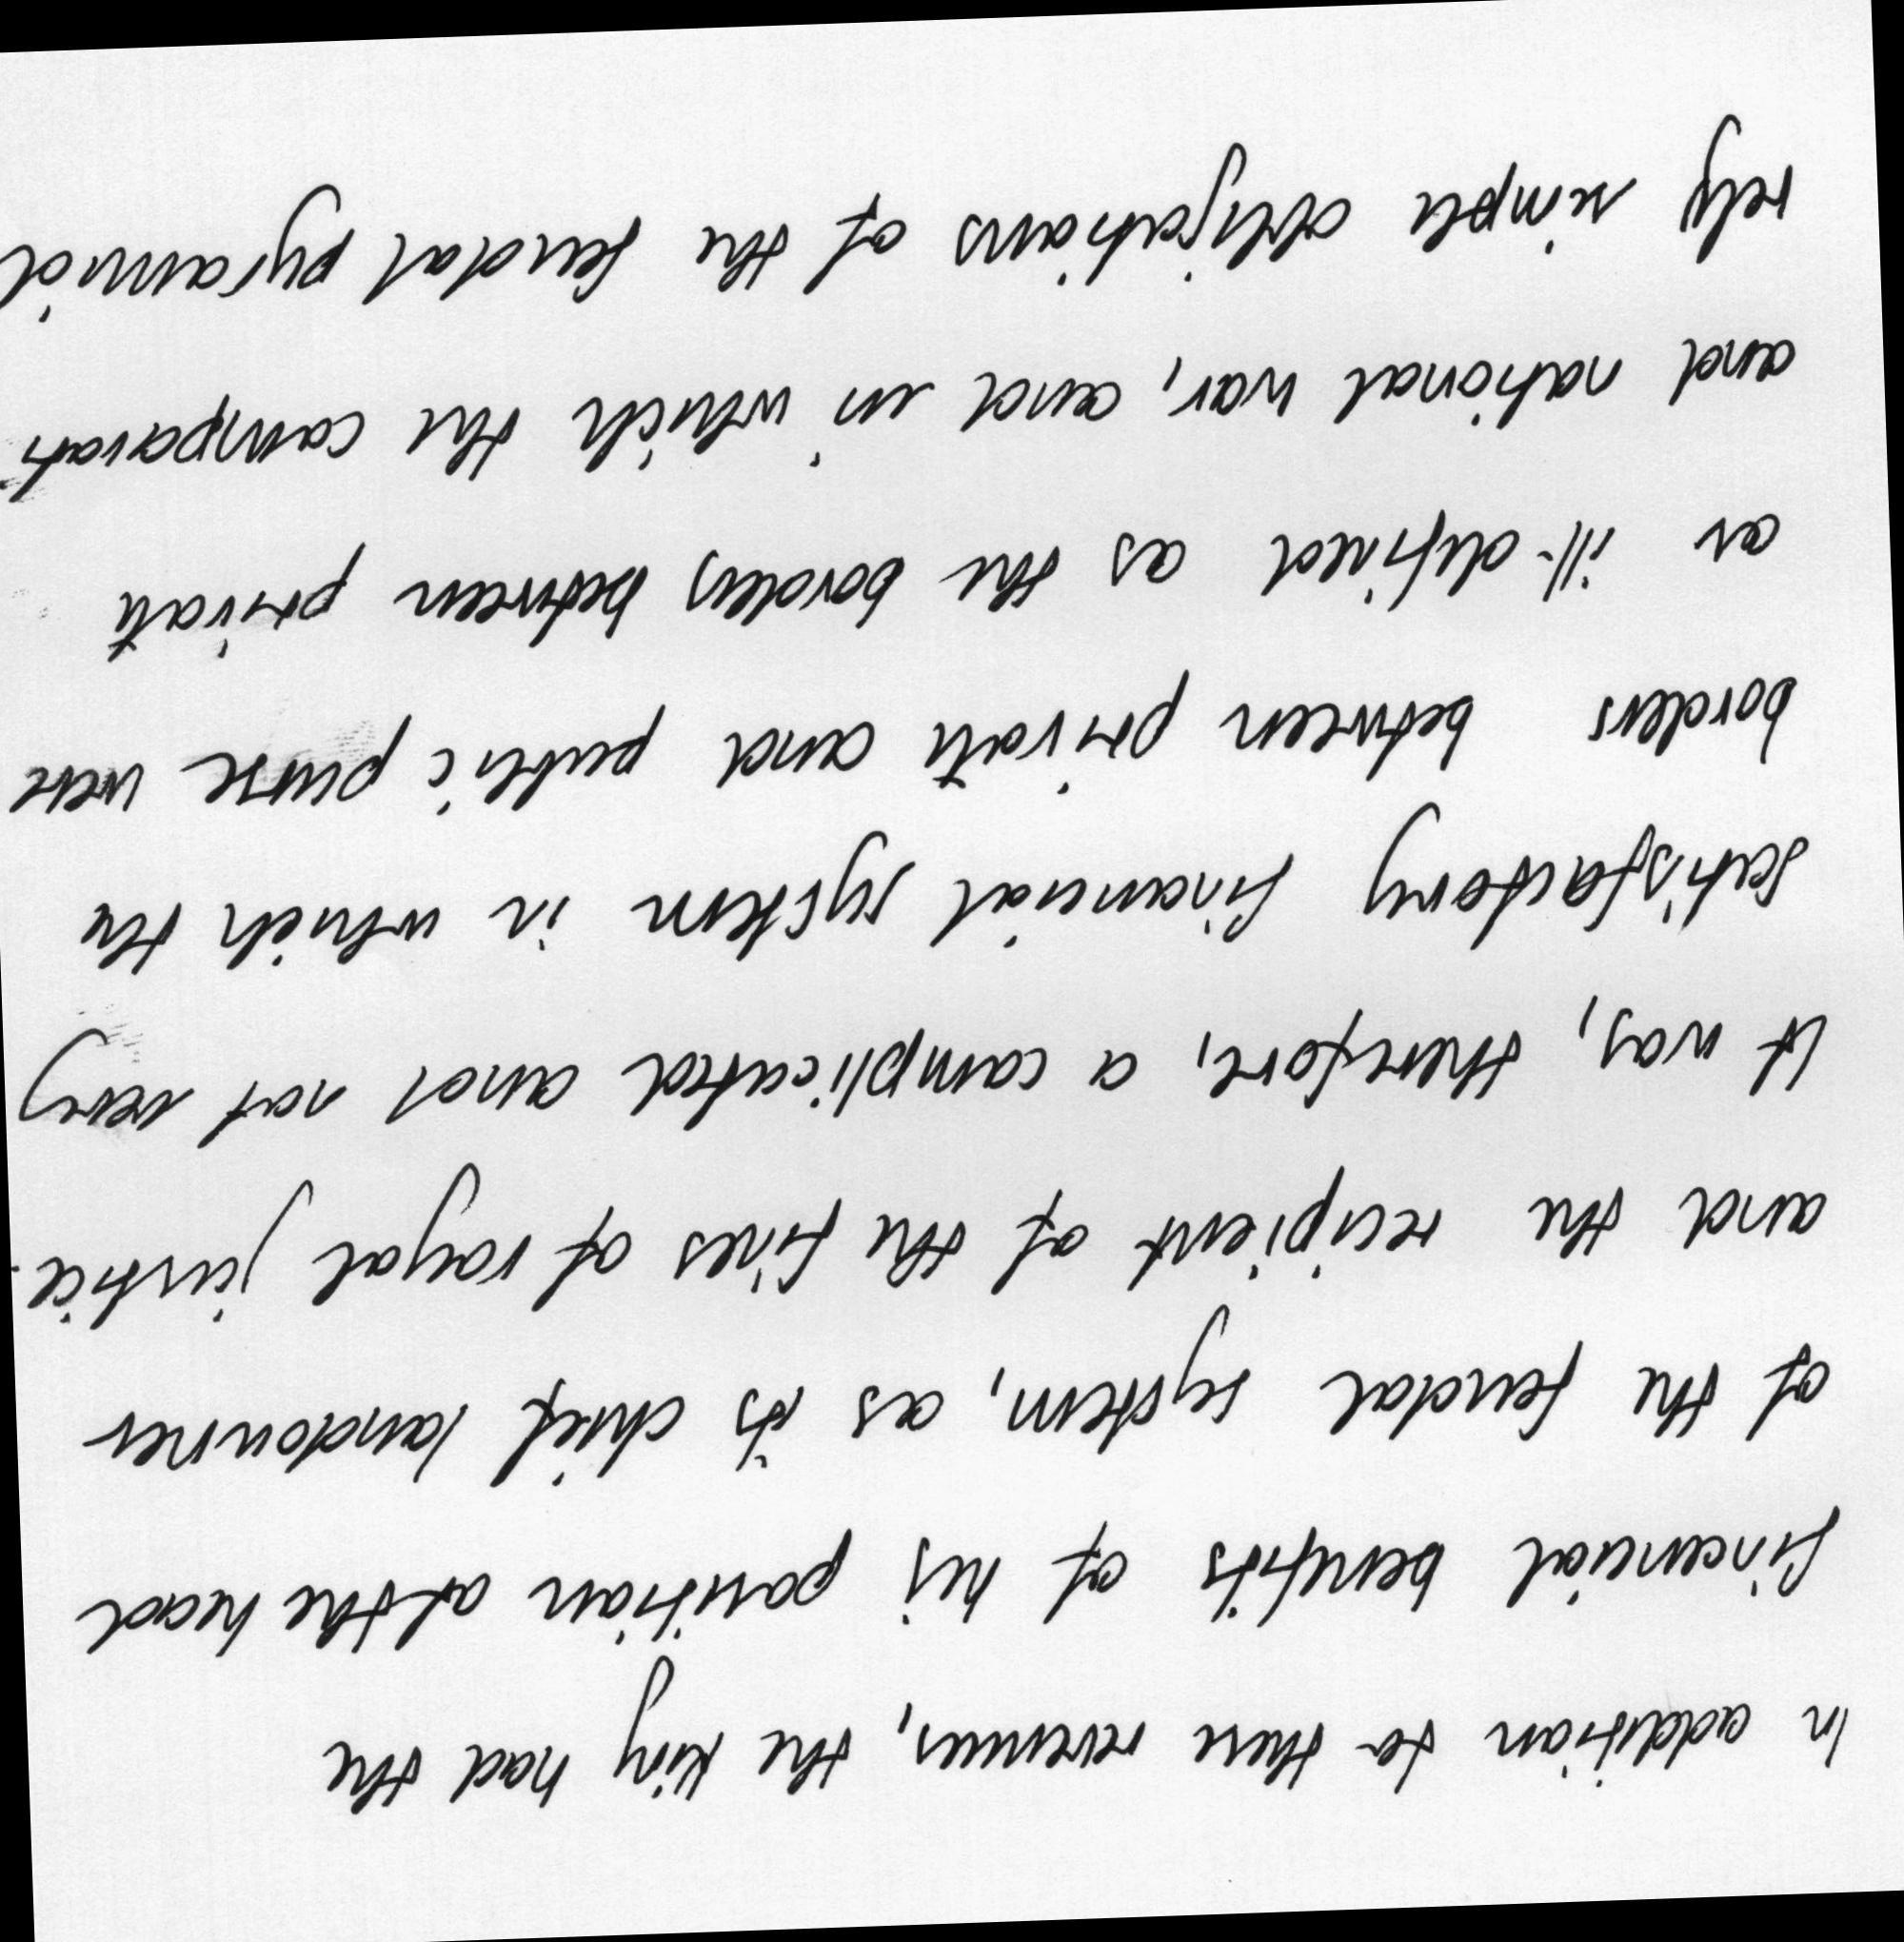 In addition to these revenues, the king had the
financial benefits of his position at the head
of the feudal system, as its chief landowner
and the recipient of the fines of royal justice.
It was, therefore, a complicated and not very
satisfactory financial system in which the
borders between private and public purse were
as ill-defined as the borders between private
and national war, and in which the comparati
vely simple obligations of the feudal pyramid